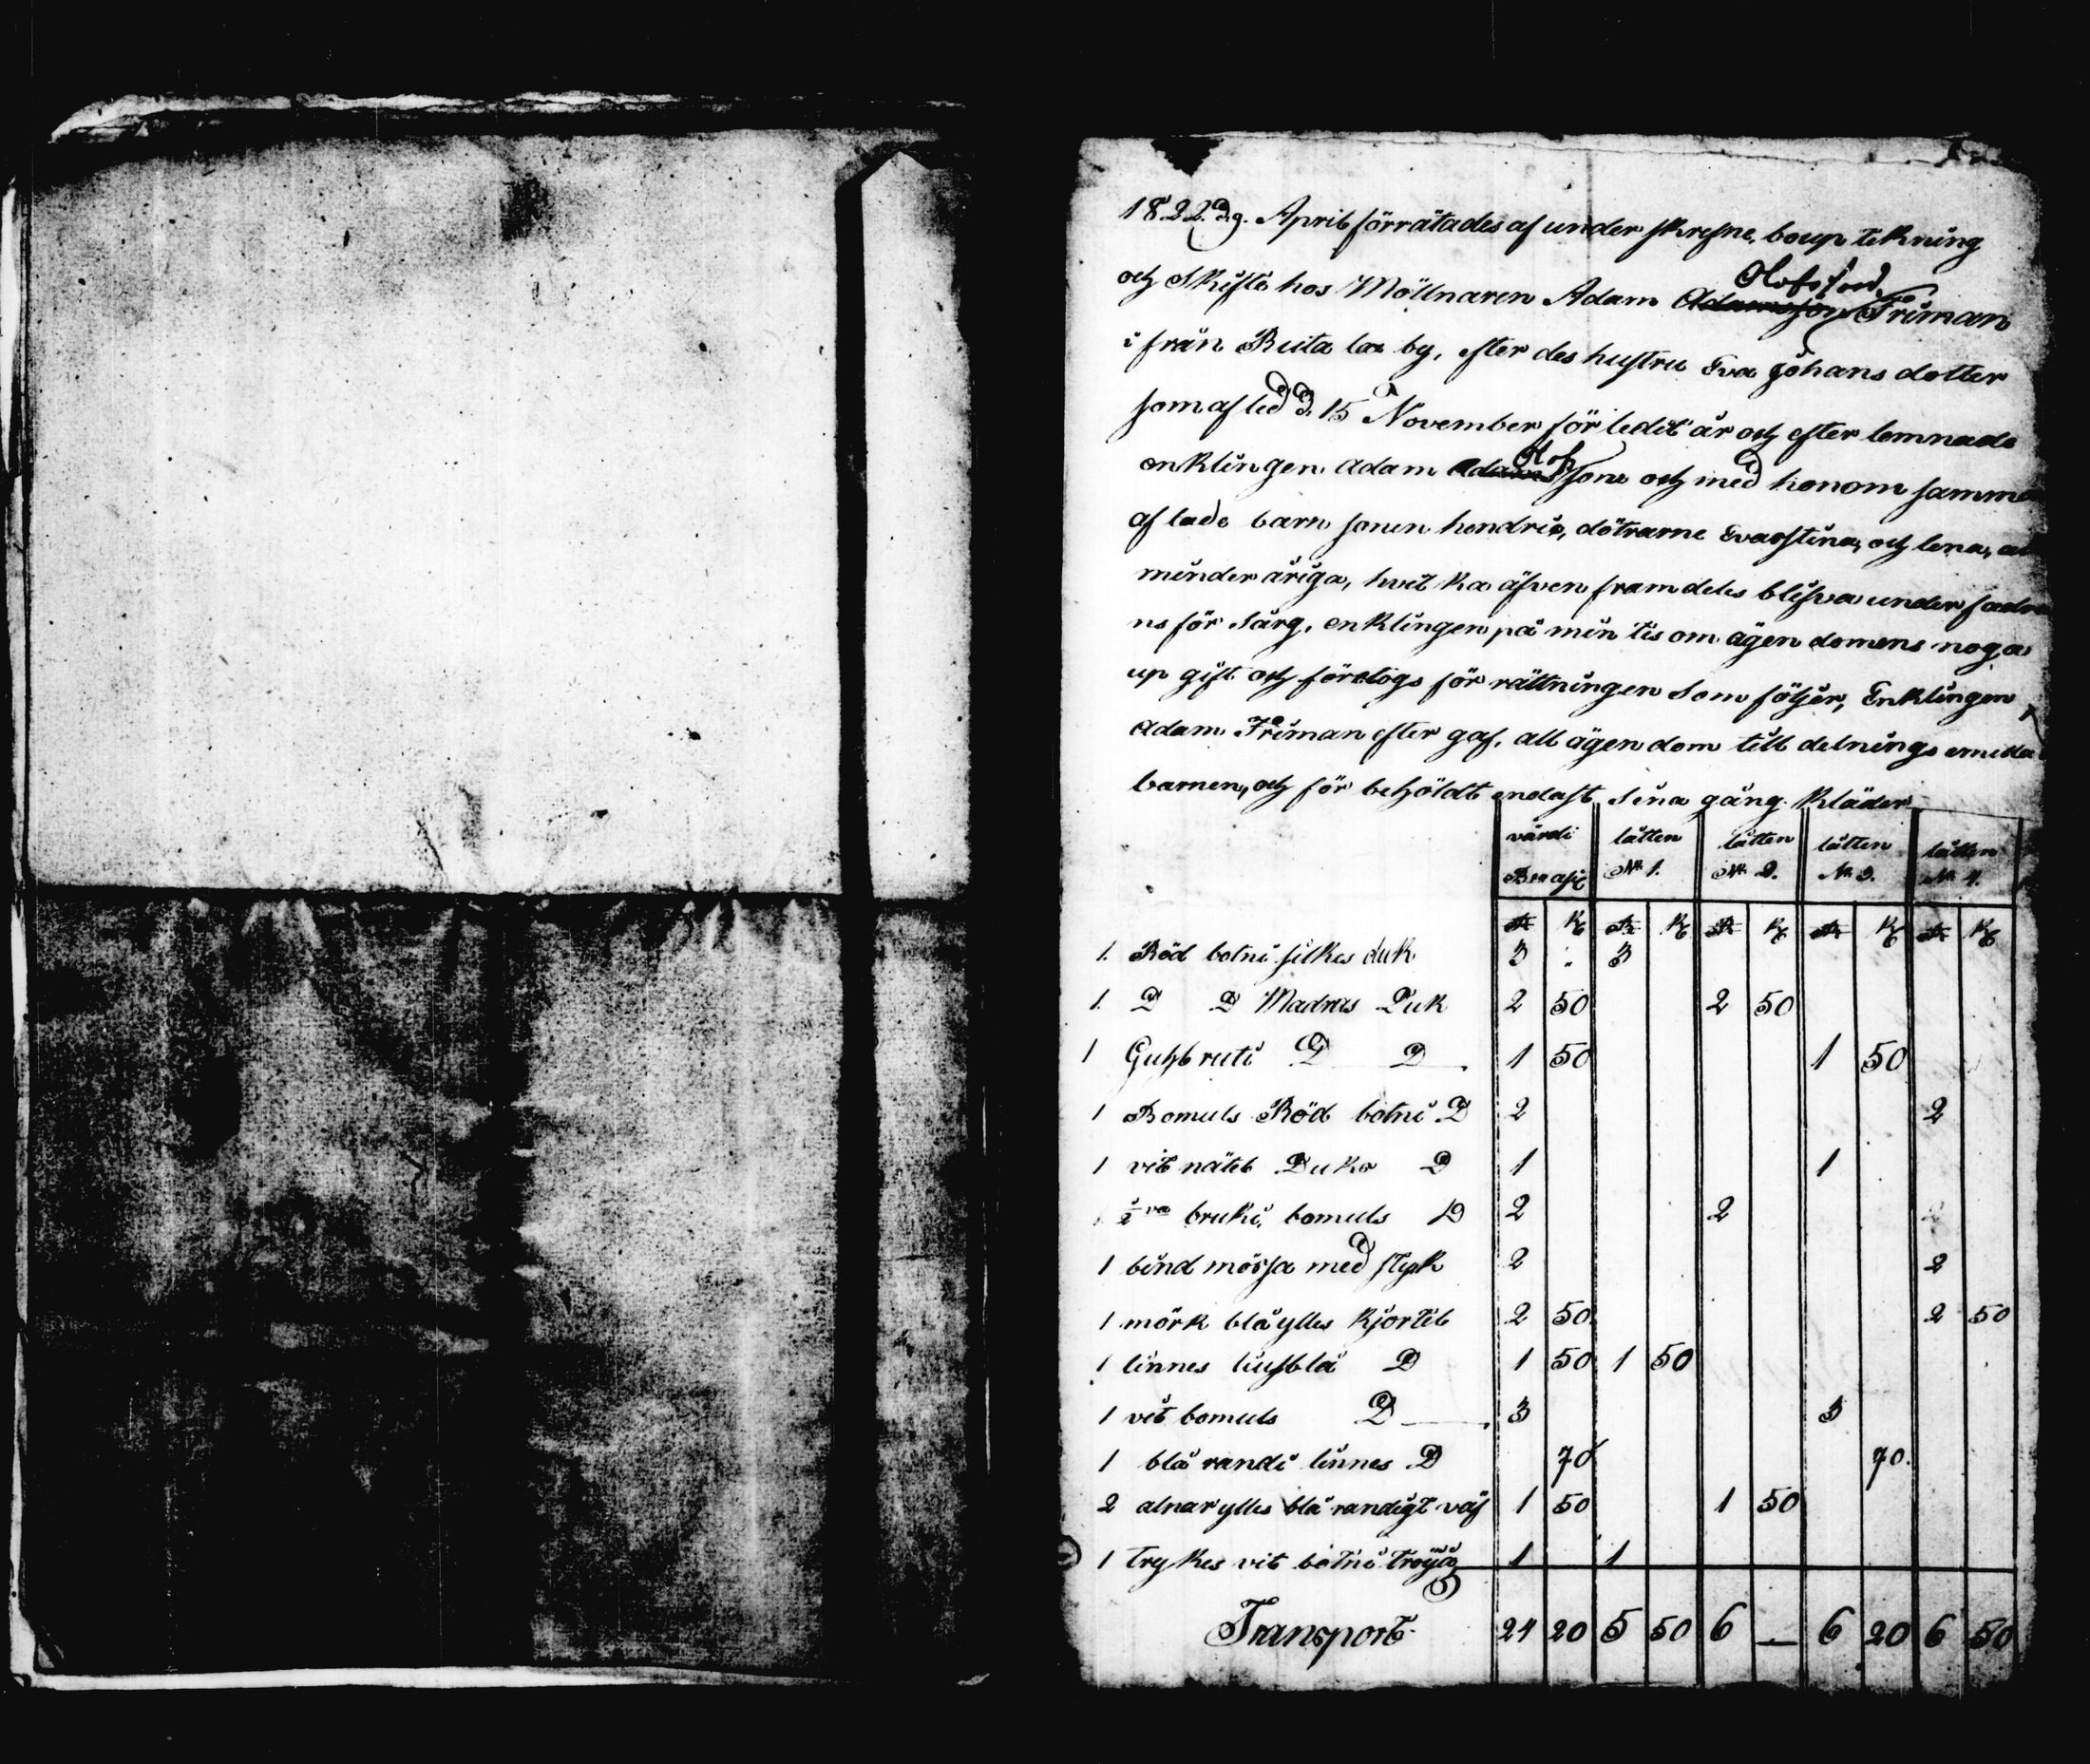 1822 d 9. April förrätades af under skrefne, boup tekning
och Skifte hos Möllnaren Adam Adamsson Olofsson Friman
i från Ruta lax by, efter des hustru Eva Johans dotter
som afled d. 15 November för ledit år och efter lemnade
enklingen Adam Adams Olofssone och med honom samman
aflade barn sonen hendric, dötrarne Evastina, och lena, al
minder åriga, hvilka äfven framdeles blifva under fadre
ns för sårg, enklingen på min tis om ägen domens noga
up gift och företogs för rättningen som följer, Enklingen
Adam Friman efter gaf, all ägen dom till delnings emella
barnen, och för behöldt endast sina gång kläder
värdi lätten lätten lätten lätten
Bco asig No 1. No 2. No 3. No 4.
R K R K R K R K R K
1. Röd botni silkes duk 3 : 3
1. D D Madras Duk 2 50 2 50
1 Gulbruti D D 1 50 1 50
1 Bomuls Röd botni D 2 2
1 vit nätel Duks D 1 1
1 ½ va bruki bomuls D 2 2
1 bind mössa med styk 2 2
1 mörk blå ylles kjortil 2 50 2 50
1 linnes liusblå D 1 50 1 50
1 vit bomuls D 3 3
1 blå randi linnes D 70 70.
2 alnar ylles blå randigt väf 1 50 1 50
1 trykes vit botni tröija 1 1
Transport 24 20 5 50 6 — 6 20 6 50